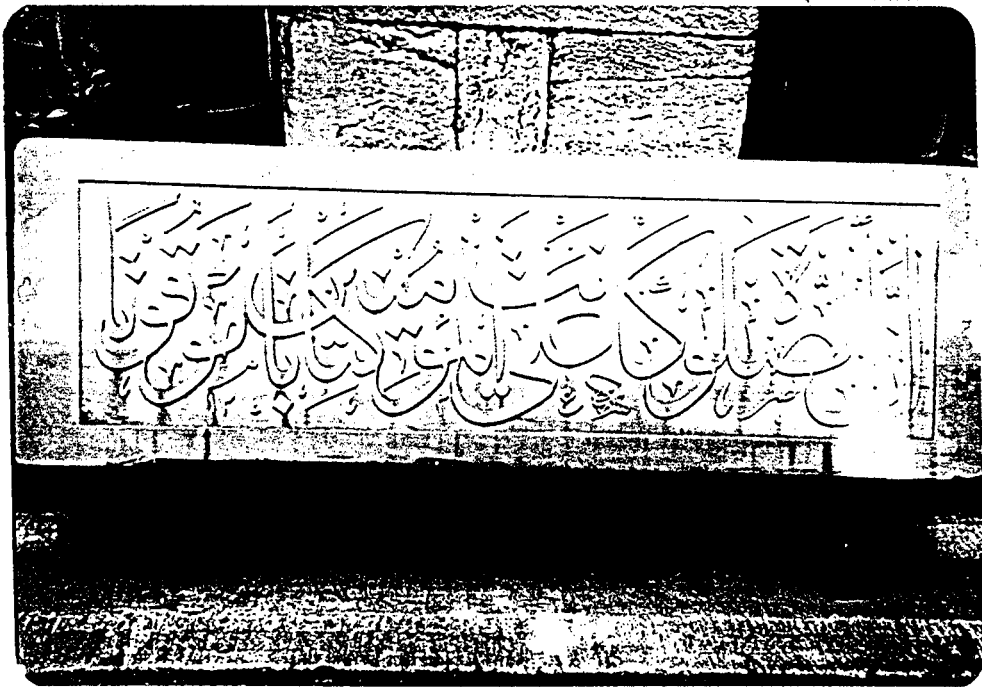 إن الصلوة كانت على المؤمنين كتابا موقوتا